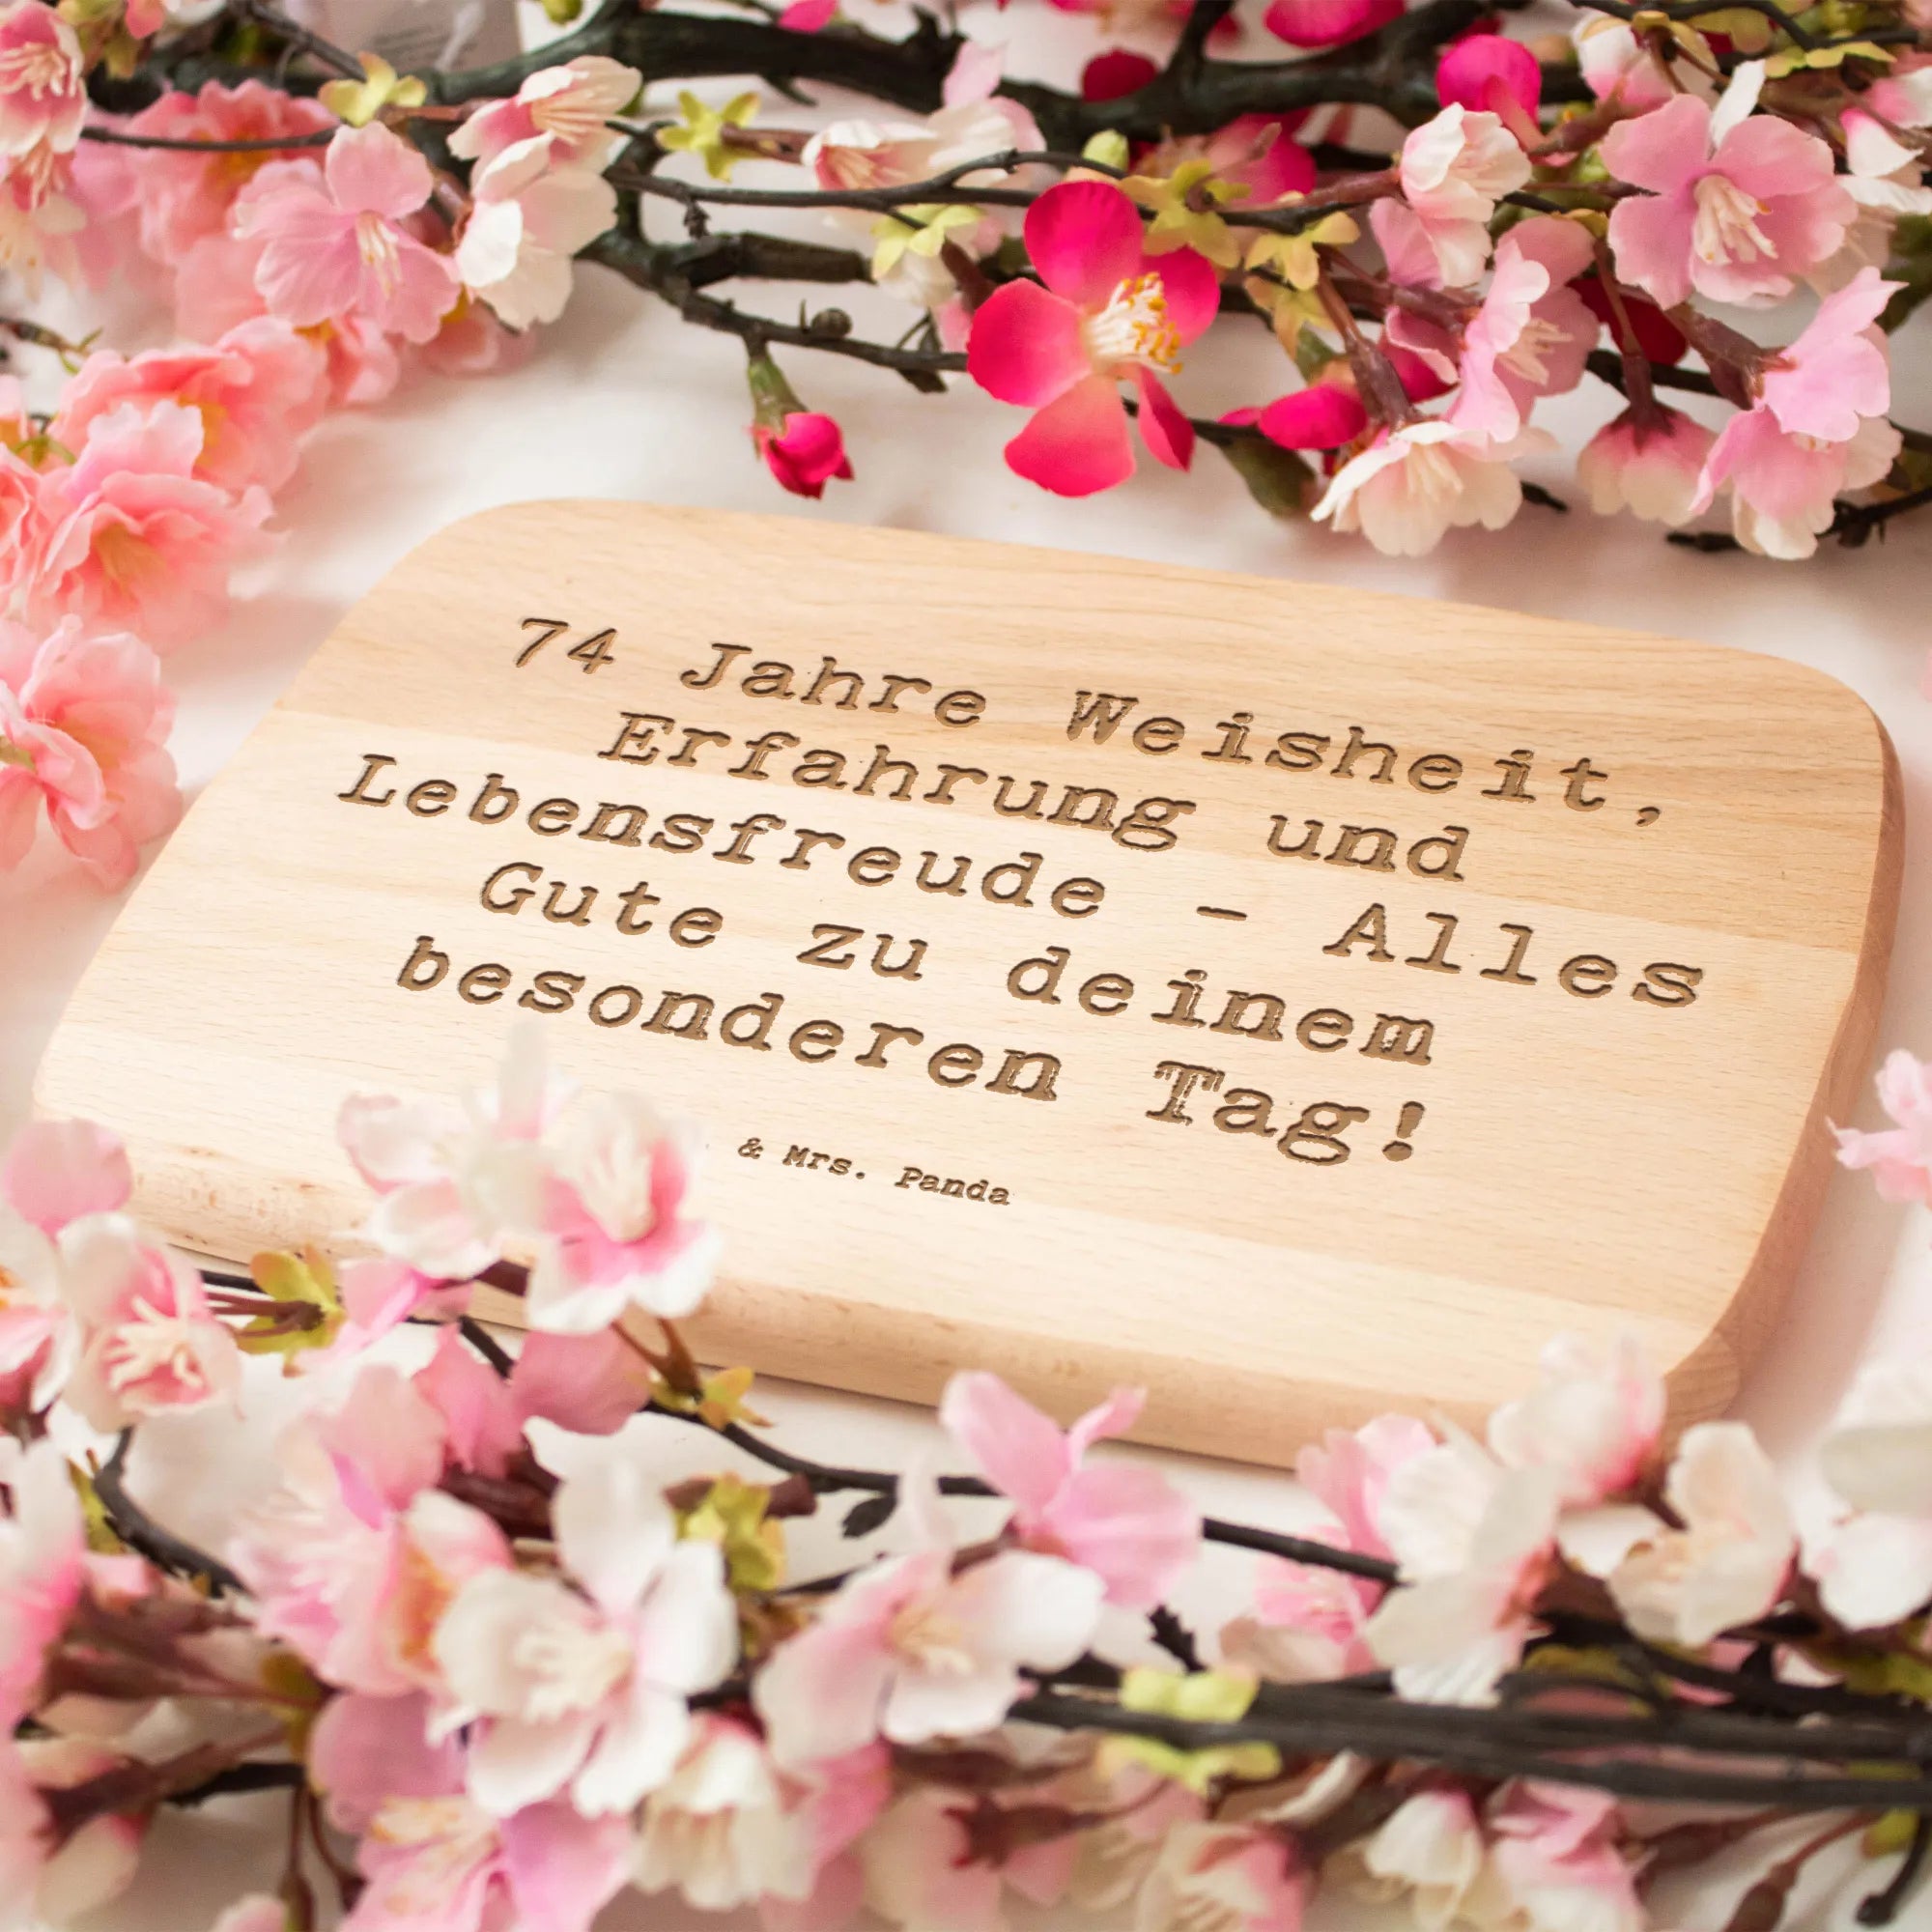 74 Jahre Weisheit,
Erfahrung und
Lebensfreude - Alles
Gute zu deinem
besonderen Tag!
& Mrs. Panda